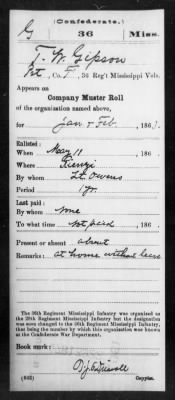 (Confederate.)
G 36 Miss.
T. W. Gipson
Pvt, Co. I, 36 Reg't Mississippi Vols.
Appears on
Company Muster Roll
of the organization named above,
for Jan & Feb, 186
Enlisted:
When May 11, 186
Where Rienzi
By whom Lt. Owens
Period 1 yr.
Last paid:
By whom None
To what time Not paid, 186 .
Present or absent absent
Remarks: at home without leave
The 36th Regiment Mississippi Infantry was organized as
the 36th Regiment Mississippi Infantry but the designation
was soon changed to the
Infantry,
that being the number by which it was known
at the
Confederate War Department.
Book mark:
(642)
Copyist.